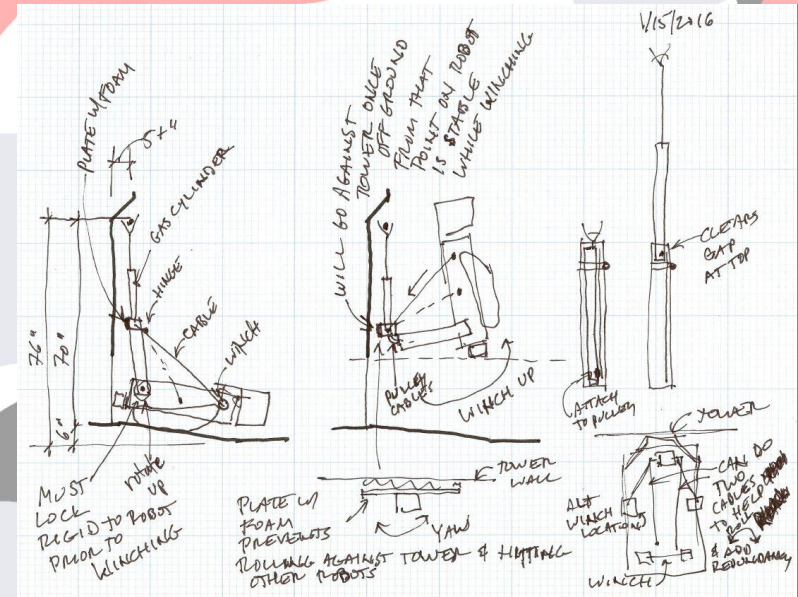 1/15/2016
PLATE W/FOAM
GAS CYLINDER
HINGE
CABLE
WINCH
76"
70"
6"
MUST
LOCK
RIGID TO ROBOT
PRIOR TO
WINCHING
rotate
UP
WILL GO AGAINST
TOWER ONCE
OFF GROUND
FROM THAT
POINT ON ROBOT
IS STABLE
WHILE WINCHING
CABLES
WINCH UP
PLATE W/
FOAM
PREVENTS
ROLLING AGAINST TOWER & HITTING
OTHER ROBOTS
TOWER
WALL
YAW
CLEARS
GAP
AT TOP
ATTACH
TO PULLEY
TOWER
ALT
WINCH
LOCATIONS
CAN DO
TWO
CABLES
TO HELP
ROLL
& ADD
REDUNDANCY
WINCH